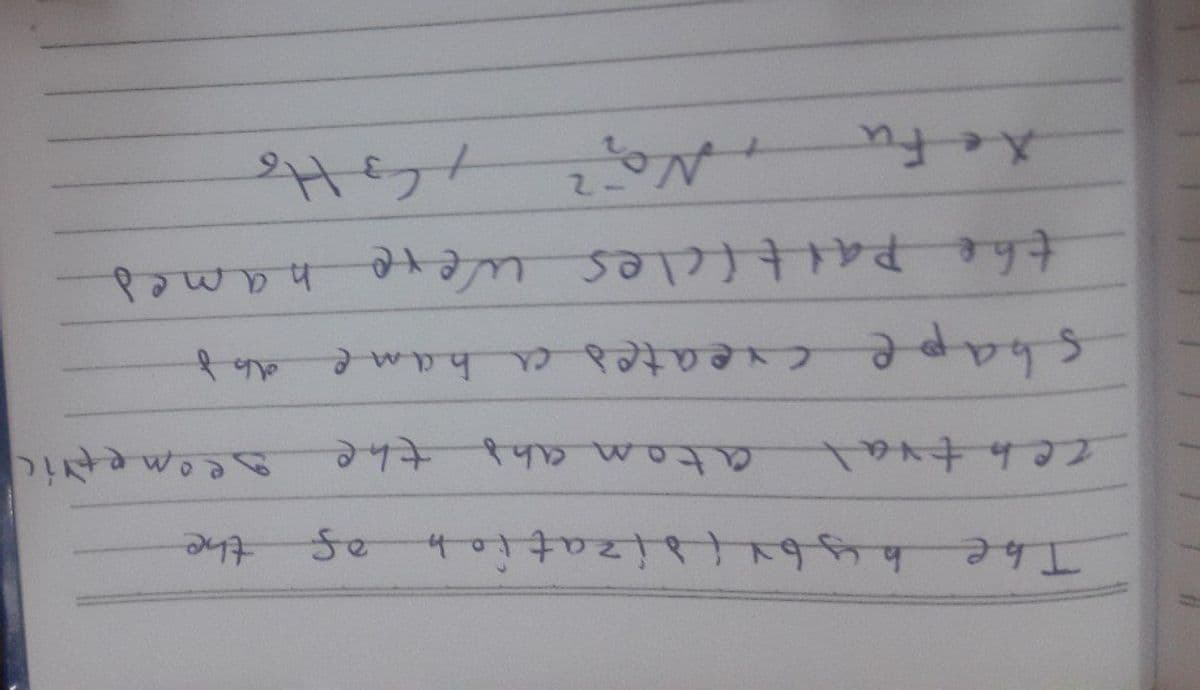 The hybridization of the
central atom and the geometric
shape created a name and
the particles were named
XeF4 , NO₂⁻² , C3H6